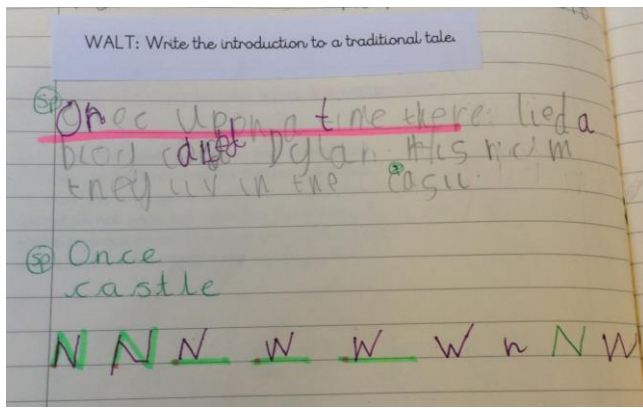 WALT: Write the introduction to a traditional tale.
Sp Onec upon a time there lied a
Dylan. His
they liv in the
Sp Once
castle
N N N W W W n N W